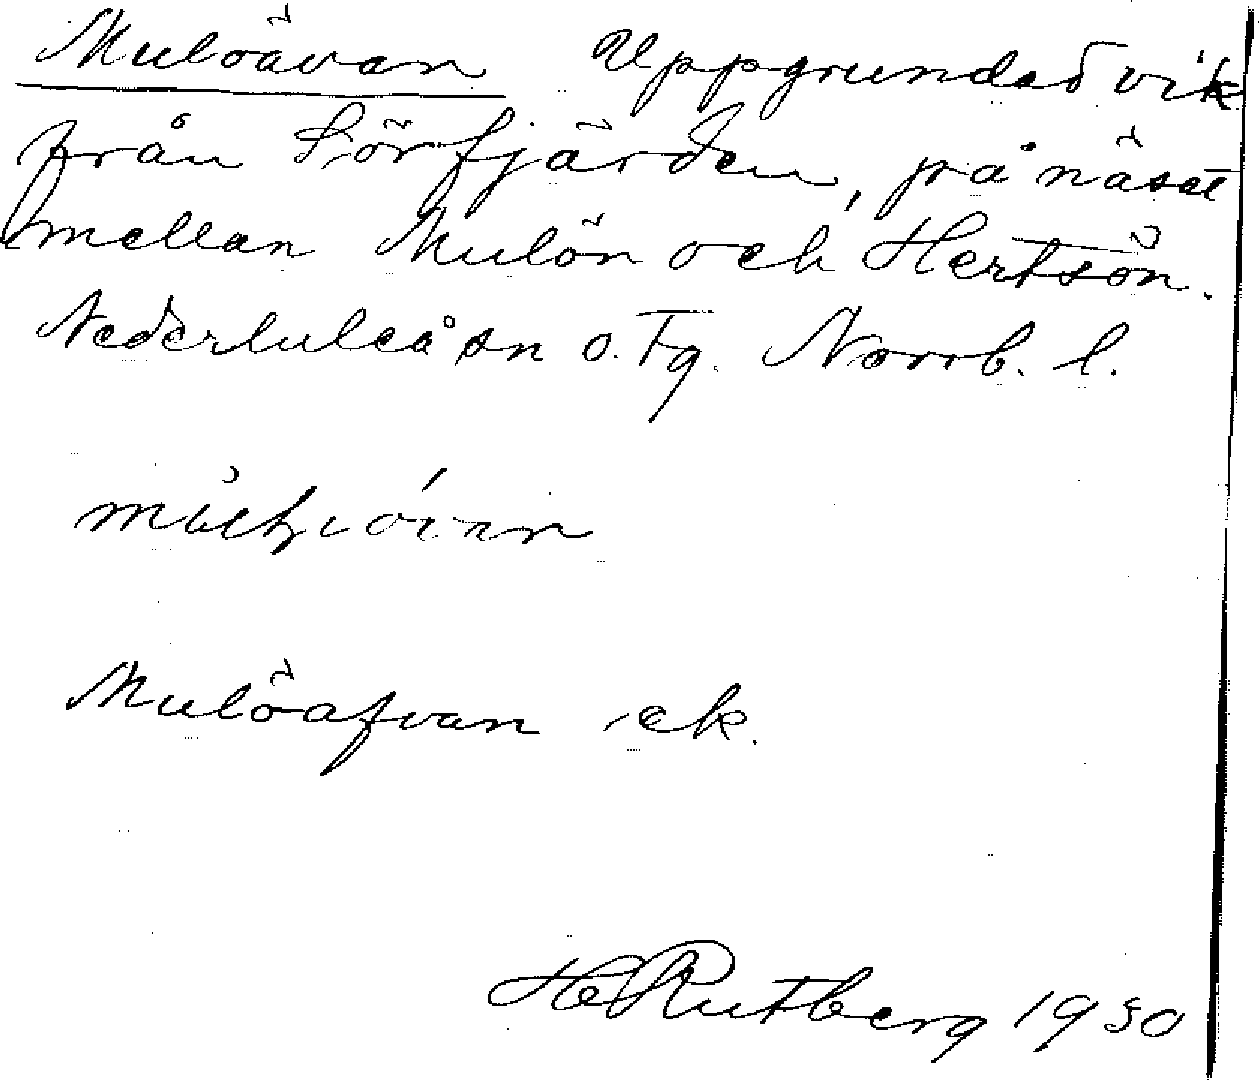 Mulöävan Uppgrundad vik
från Sörfjärden, på näset
mellan Mulön och Hertsön.
Nederluleå sn o. Fg. Norrb. l.
Mulöafvan ek.
H Rutberg 1930